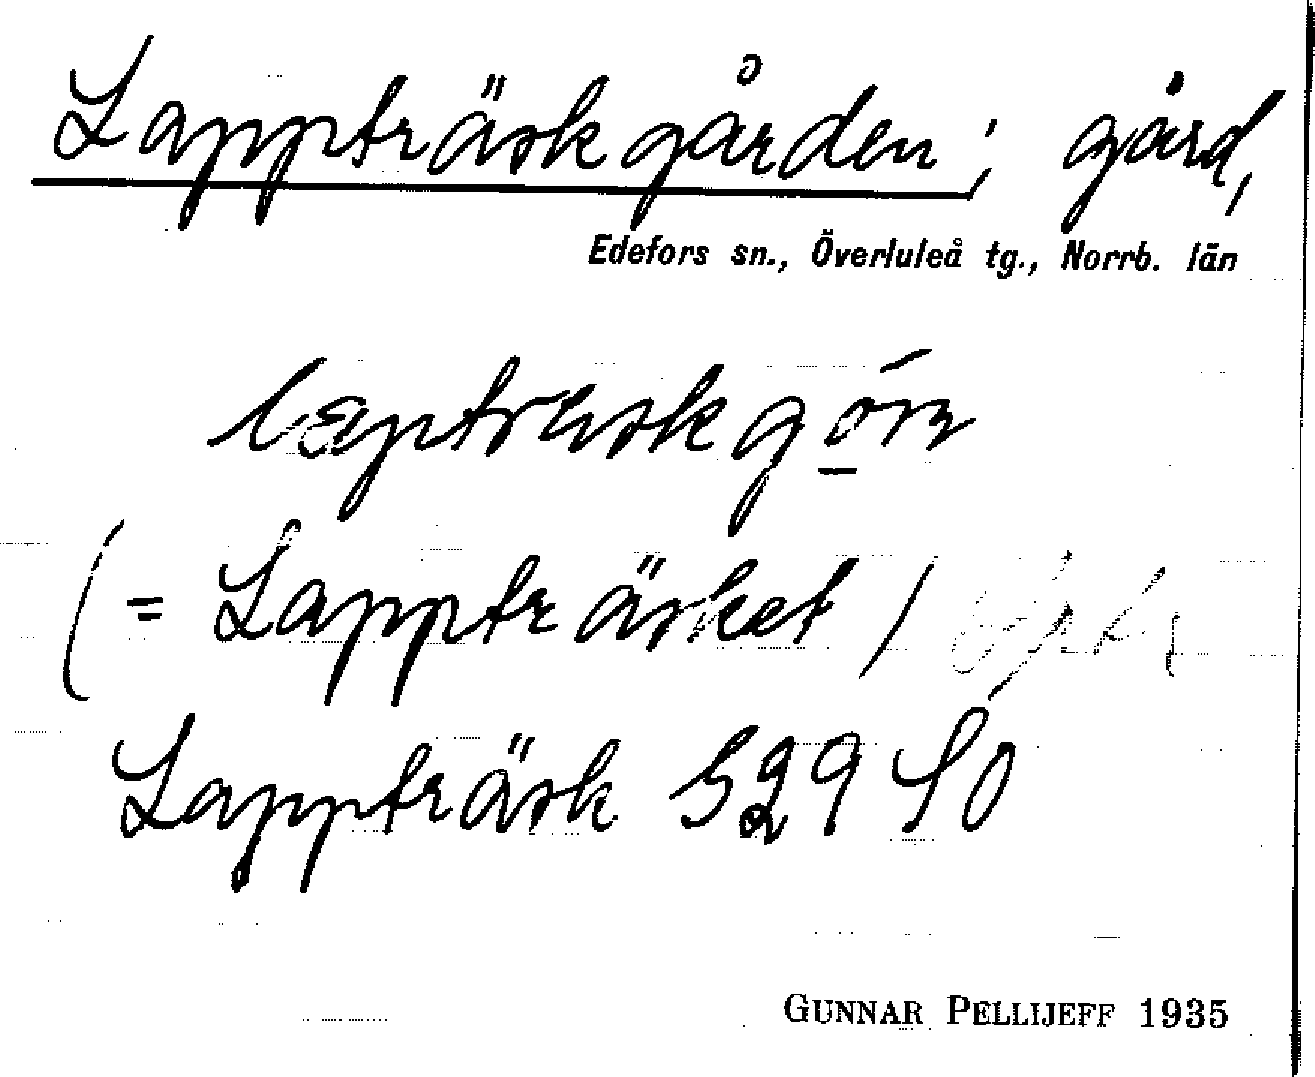 Lappträskgården; gård,
Edefors sn., Överluleå tg., Norrb. län
(= Lappträsket)
Lappträsk 529 SO
GUNNAR PELLIJEFF 1935